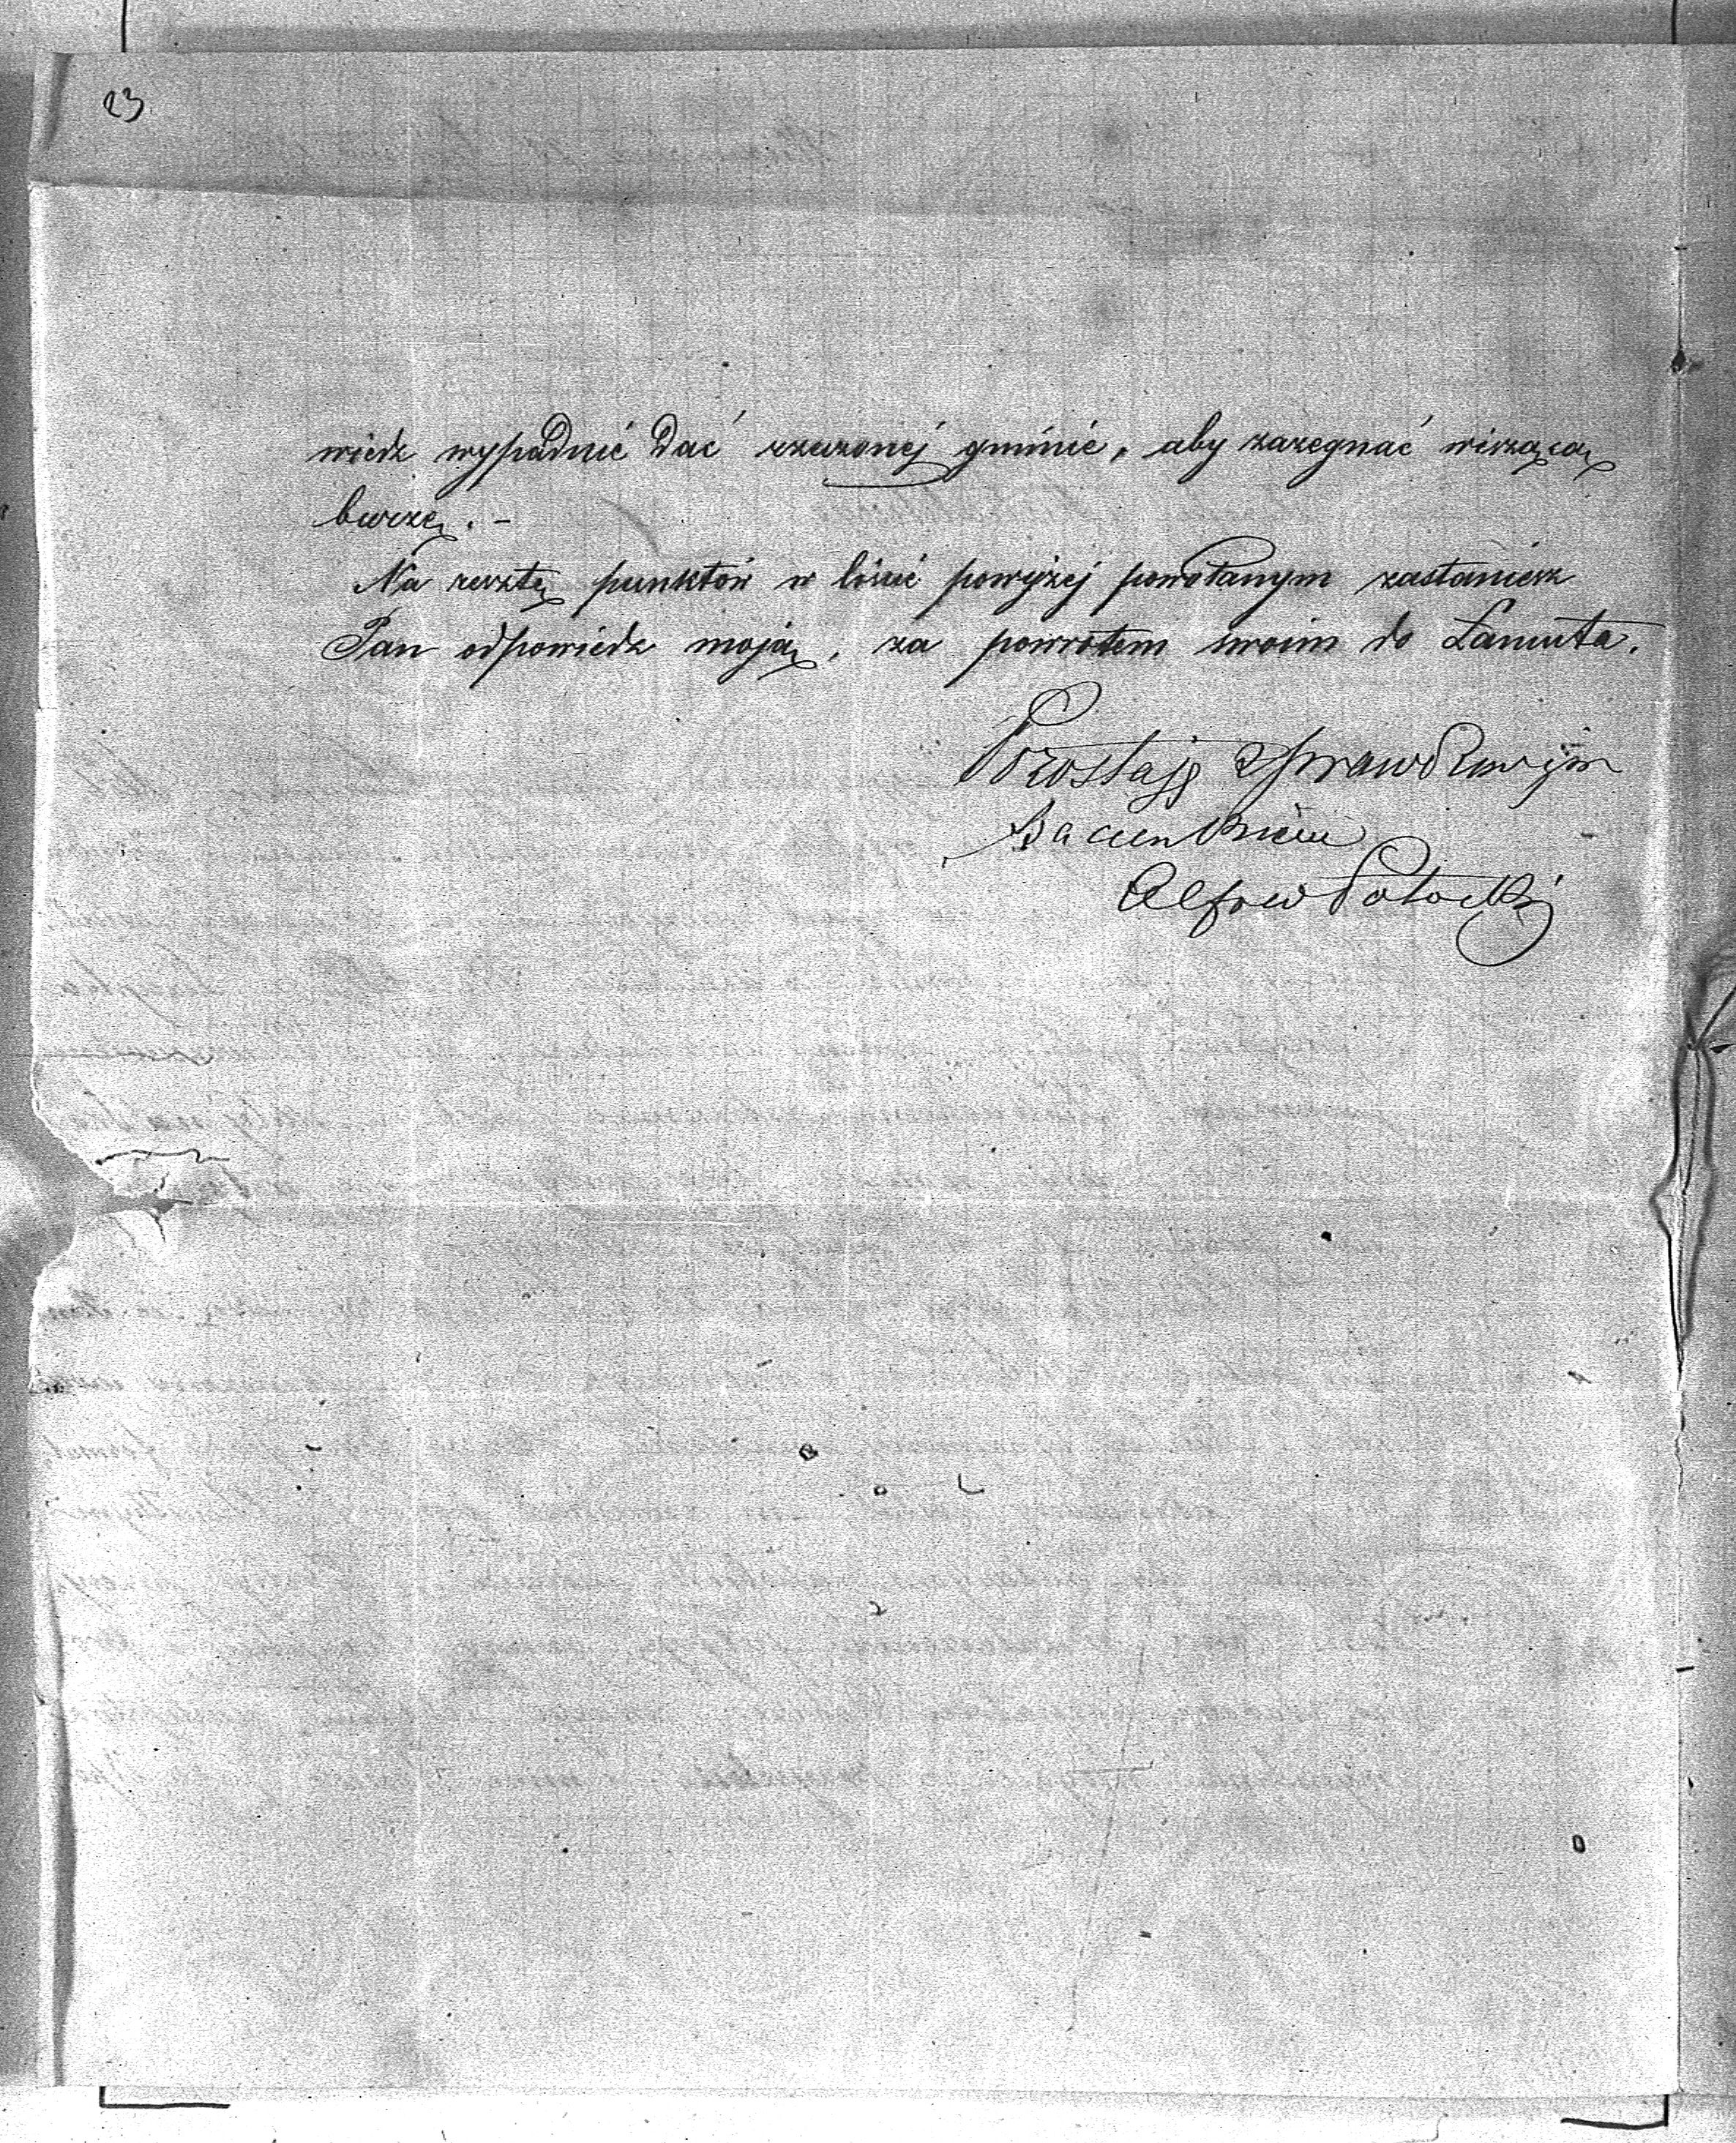 23
wiedz wypadnie dać rzeczonej gminie, aby zażegnać wiszącą
burzę. -
Na resztę punktów w liście powyżej powołanym zastaniesz
Pan odpowiedz moją, za powrotem swoim do Łańcuta.
Pozostaję z prawdziwym
szacunkiem
Alfred Potocki